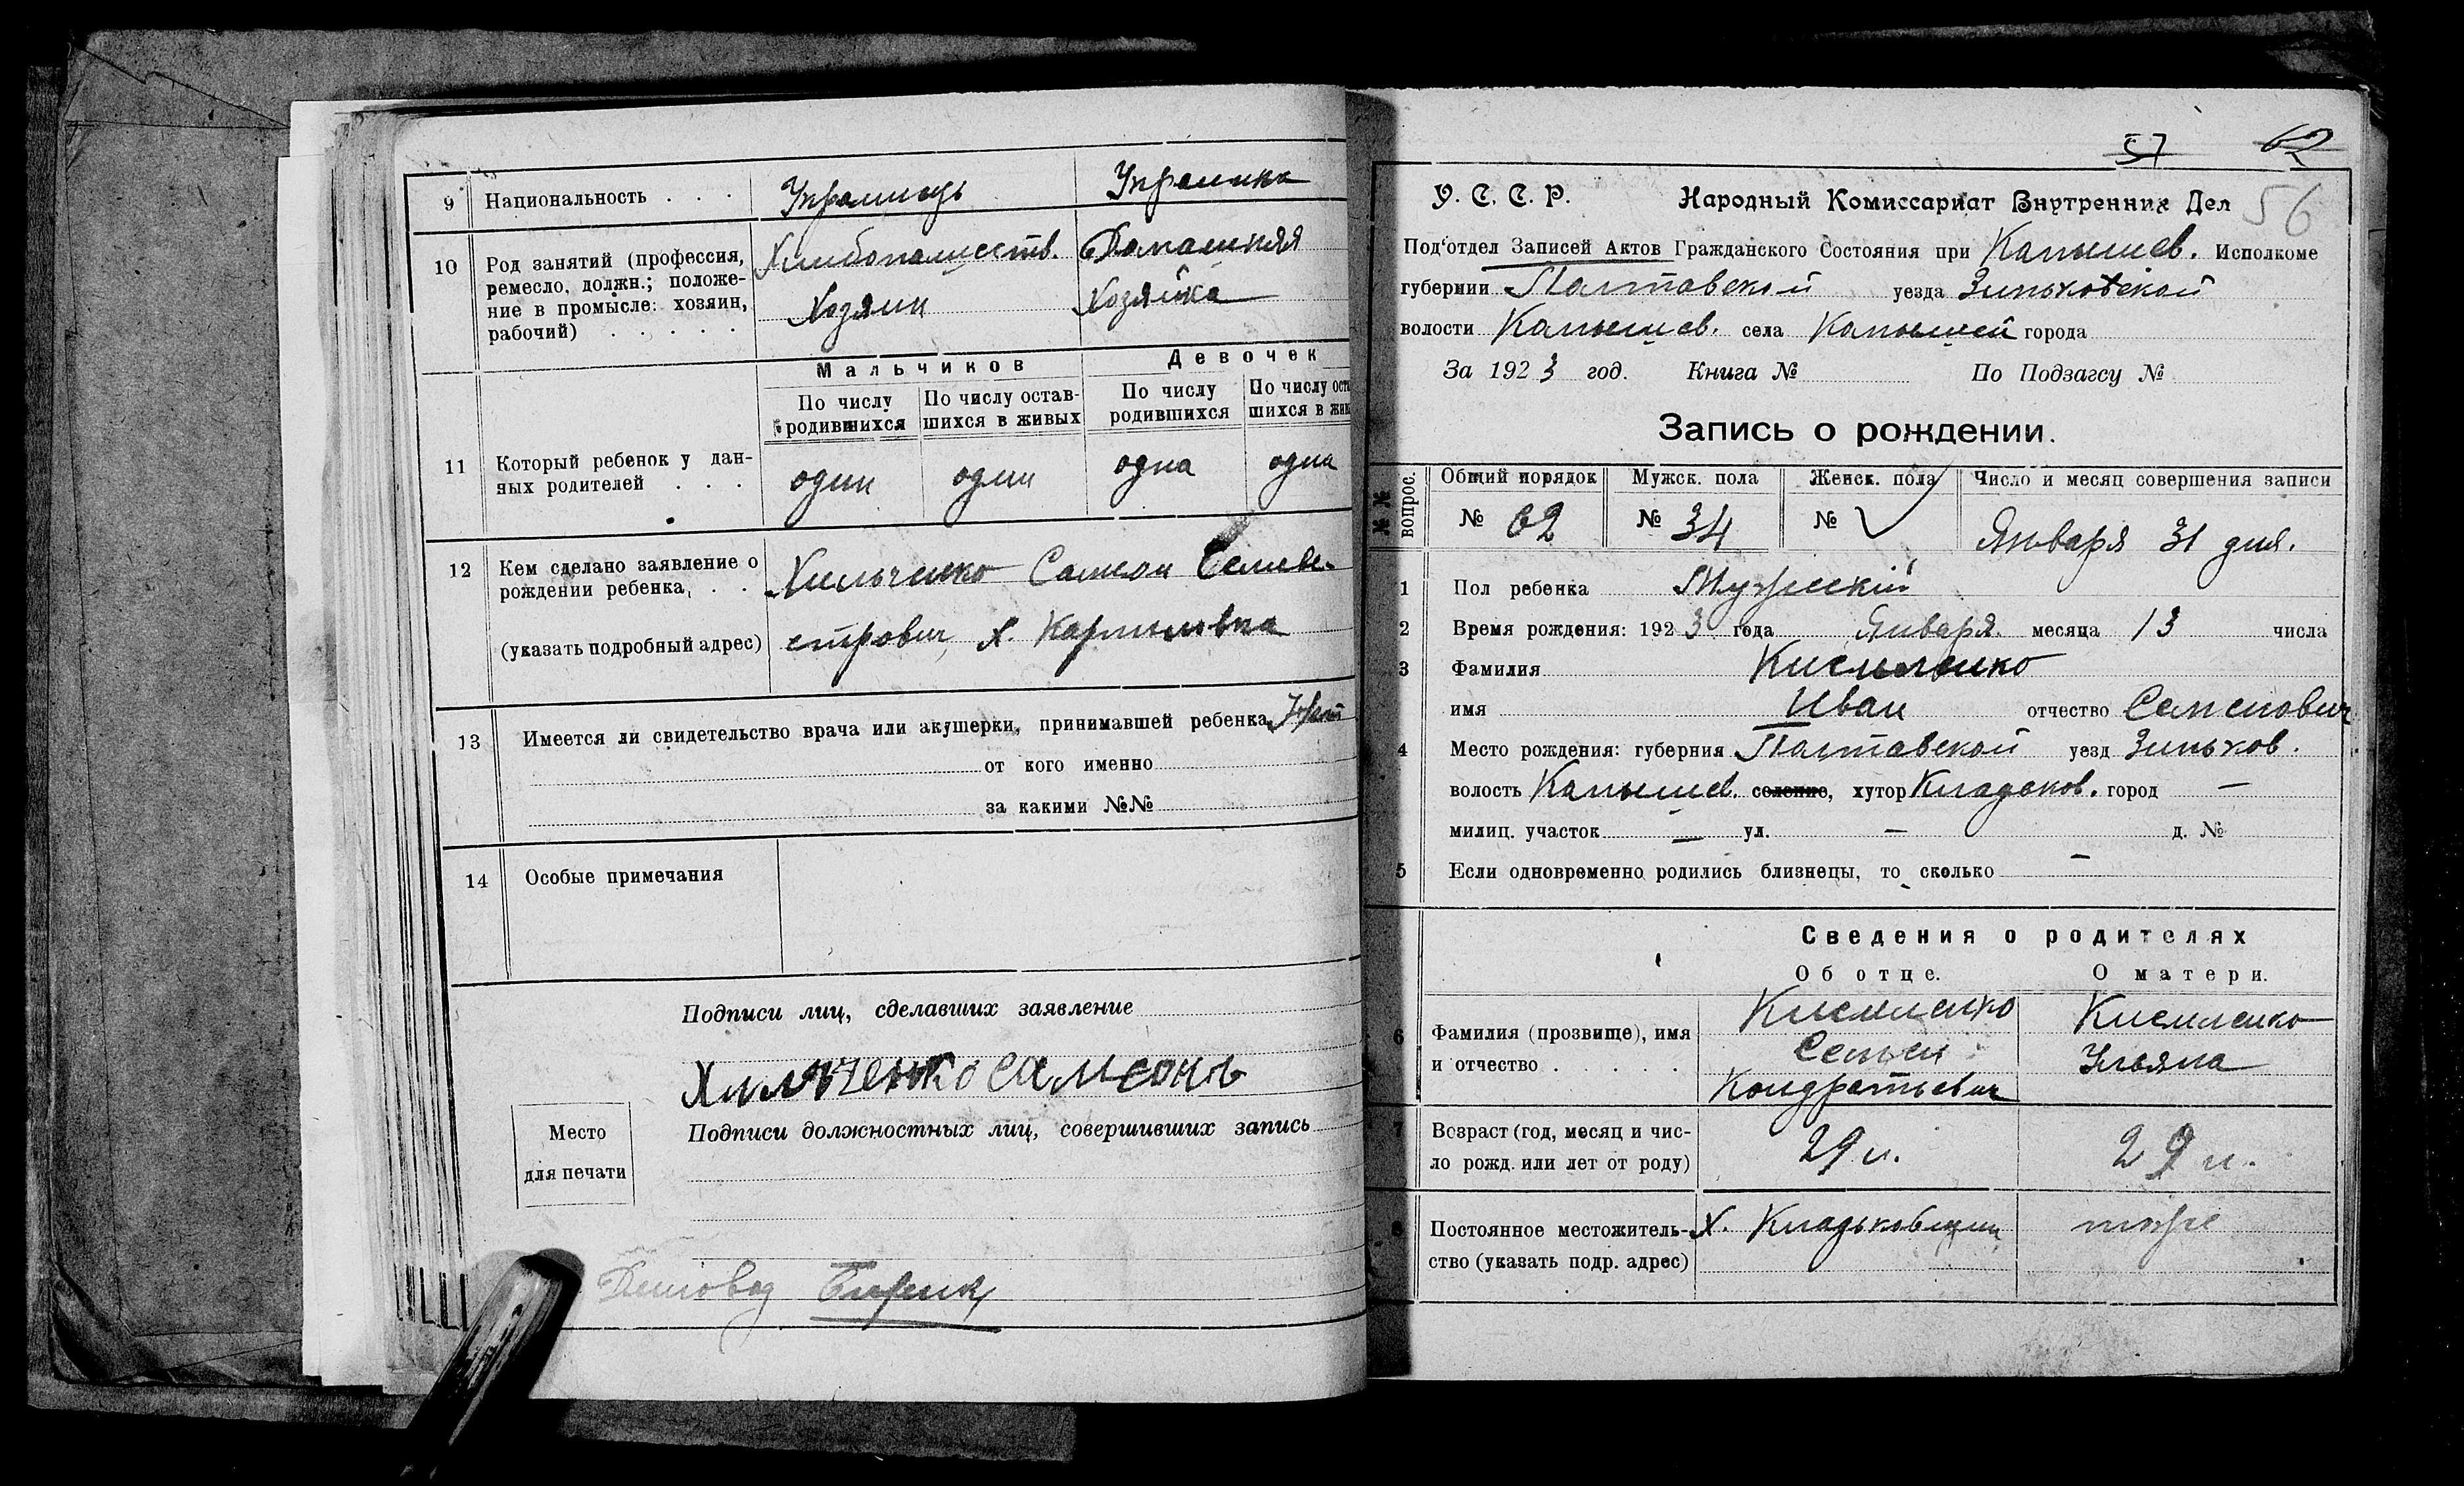 9 Национальность . . . Украинець Украинка
10 Род занятий (профессия, Хлибопашеств. Домашняя
ремесло, должн.; положе-
ние в промысле: хозяин, Хозяин Хозяйка
рабочий) . . . . .
Мальчиков Девочек
По числу родившихся По числу остав-шихся в живых По числу родившихся По числу оста
шихся в жив
11 Который ребенок у дан-
ных родителей . . . один один одна одна
12 Кем сделано заявление о Хильченко Самсон Селиве-
рождении ребенка, . .
(указать подробный адрес) стрович, х.
13 Имеется ли свидетельство врача или акушерки, принимавшей ребенка Нет
от кого именно
за какими №№
14 Особые примечания
Подписи лиц, сделавших заявление
Хильченко Самсонъ
Место
для печати
Подписи должностных лиц, совершивших запись
Деловод
57 62
56
У. С. С. Р. Народный Комиссариат Внутренних Дел
Под'отдел Записей Актов Гражданского Состояния при Капышев. Исполкоме
губернии Полтавской уезда Зиньковской
волости Капышев. села города
За 1923 год. Книга № По Подзагсу №
Запись о рождении.
№№ вопрос. Общий порядок Мужск. пола Женск. пола Число и месяц совершения записи
№ 62 № 34 № Января 31 дня.
1 Пол ребенка Мужский
2 Время рождения: 1923 года Января месяца 13 числа
3 Фамилия Кисиленко
имя Иван отчество Семенович
4 Место рождения: губерния Полтавской уезд Зиньков.
волость Капышев. селение, хутор Кладьков. город —
милиц. участок — ул. — д. №
5 Если одновременно родились близнецы, то сколько —
Сведения о родителях
Об отце. О матери.
6 Фамилия (прозвище), имя Кисиленко Кисиленко
и отчество . . . . . Семен Ульяна
Кондратьевич
7 Возраст (год, месяц и чис-
ло рожд. или лет от роду) 29 л. 29 л.
8 Постоянное местожитель- Х. Кладьковщин тоже
ство (указать подр. адрес)